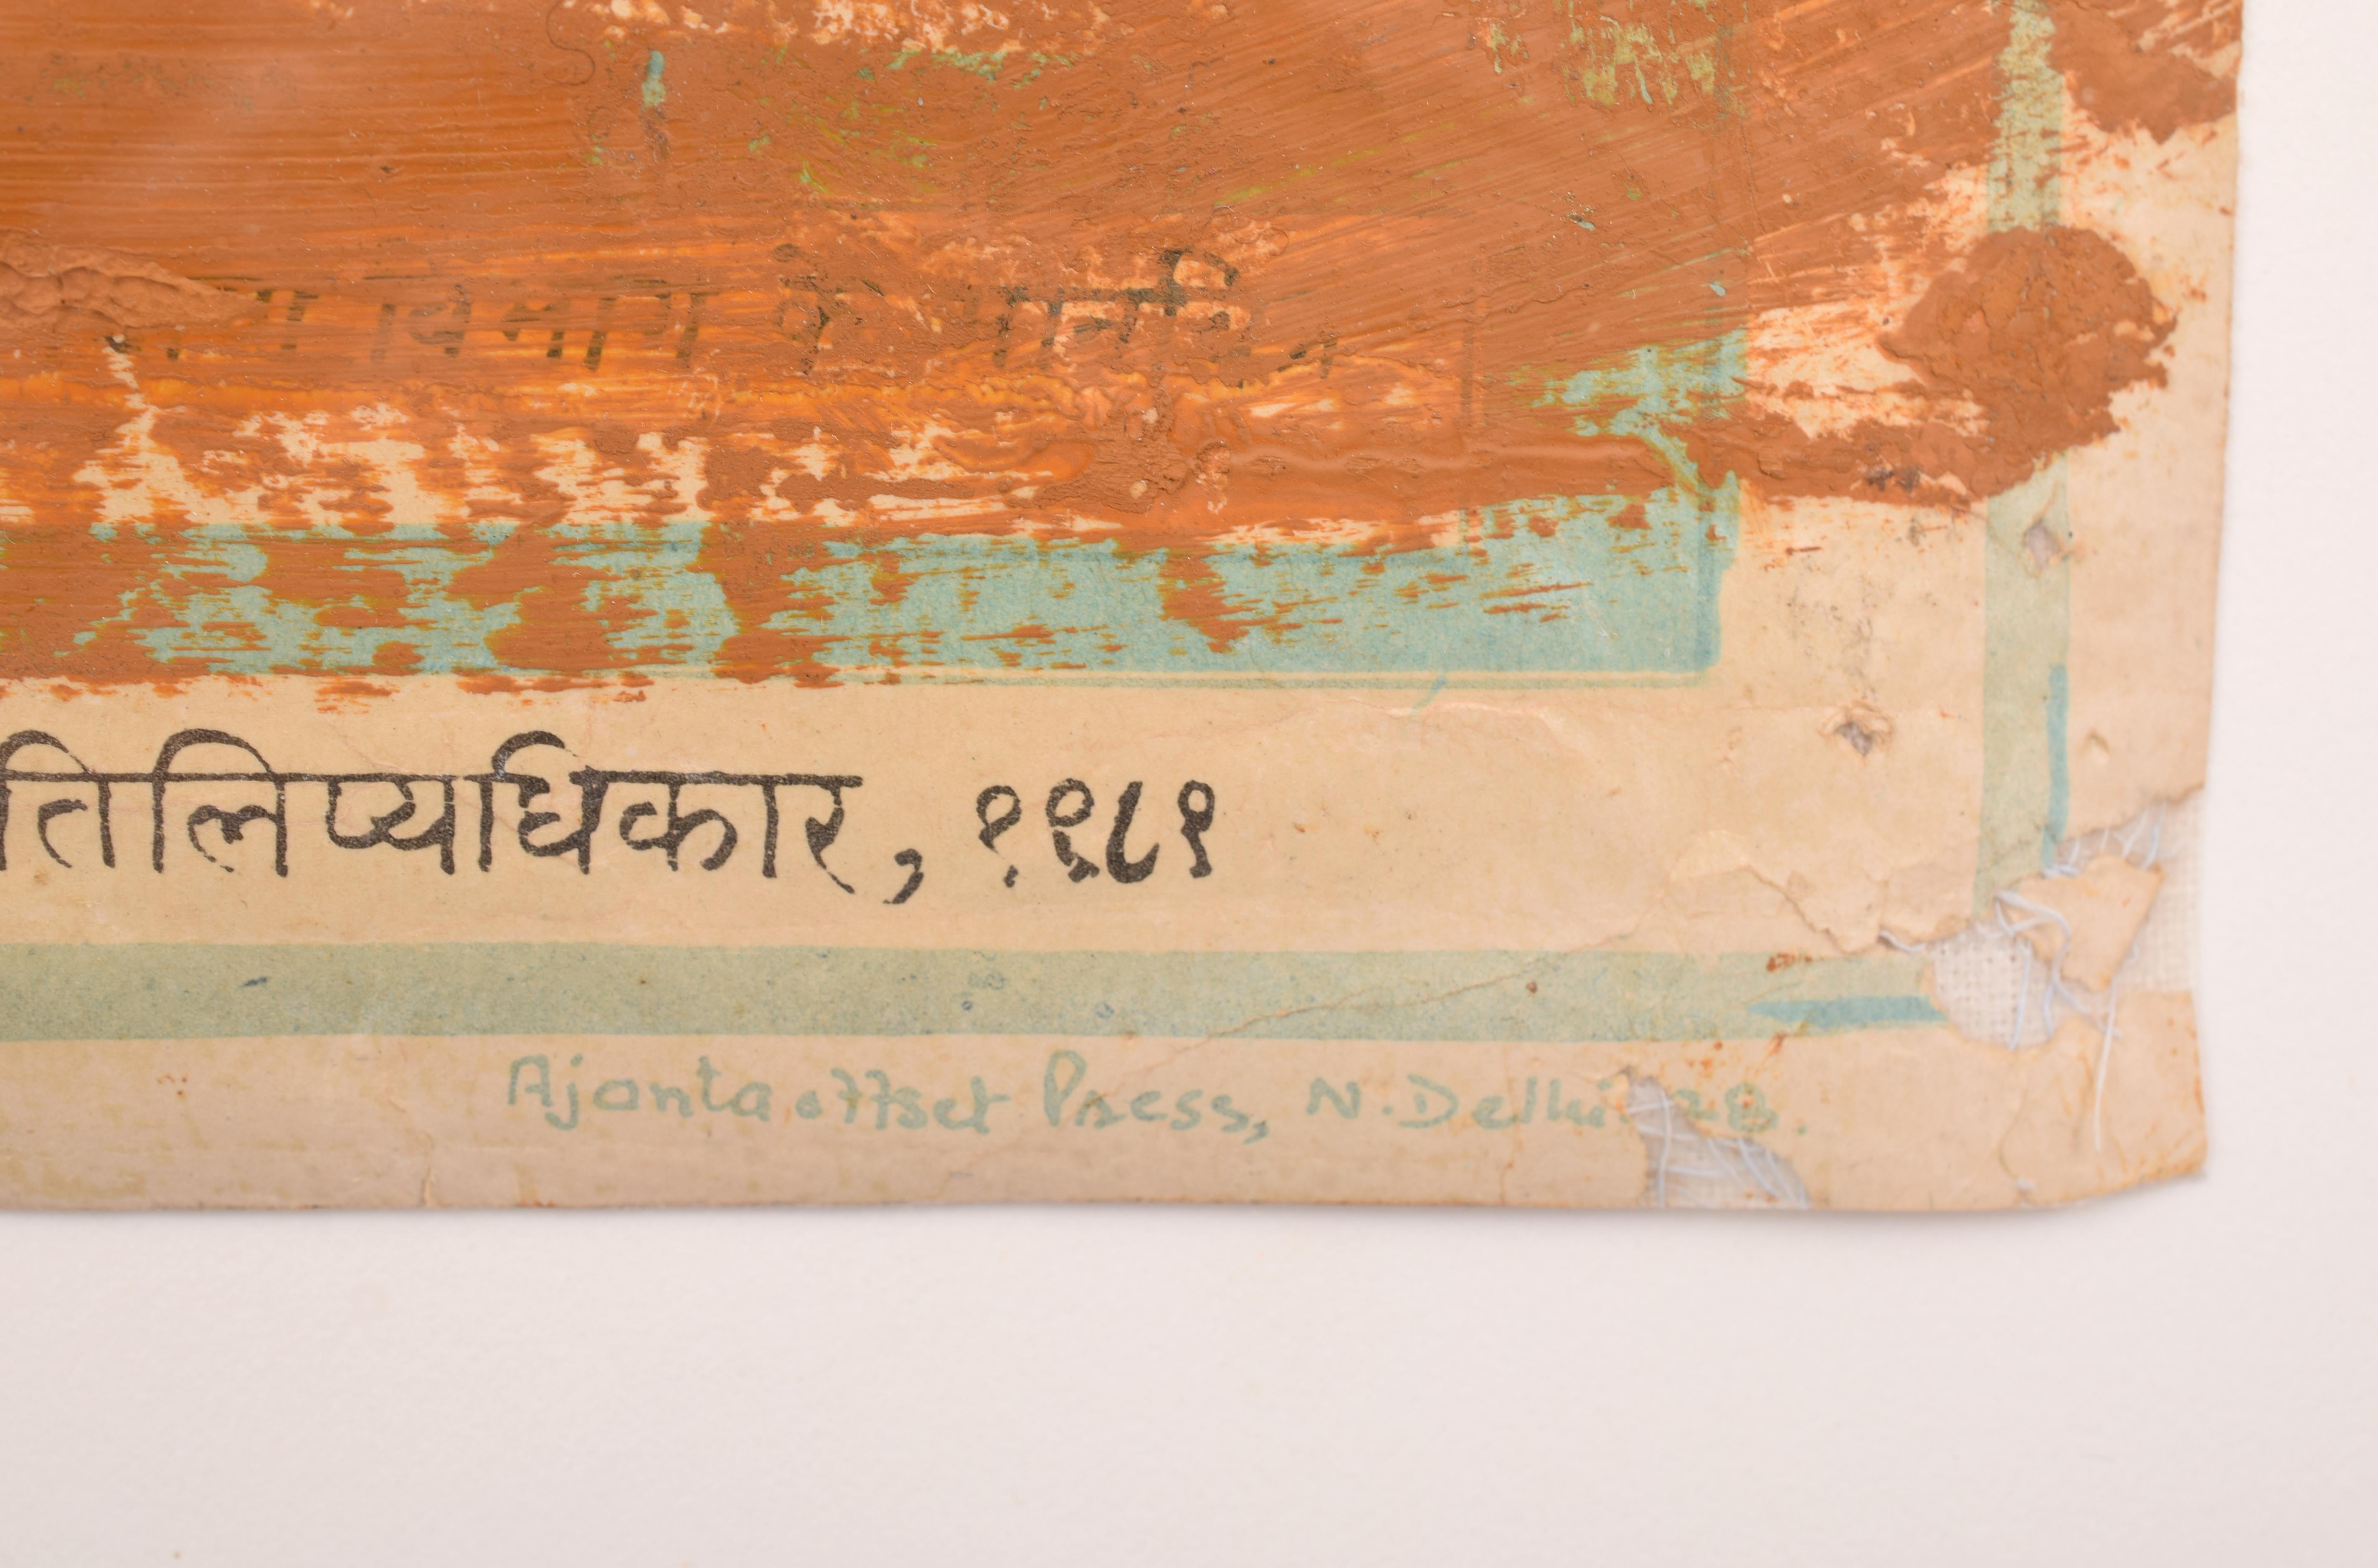 विभाग के मानचित्र
तिलिप्यधिकार, १९८१
Ajanta offset Press, N. Delhi 28.